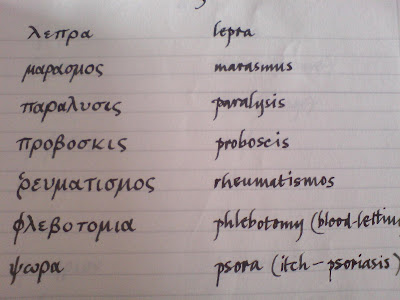 λεπρα lepra
μαρασμος marasmus
παραλυσις paralysis
προβοσκις proboscis
ῥευματισμος rheumatismos
φλεβοτομια phlebotomy (blood-letting
ψωρα psora (itch – psoriasis)